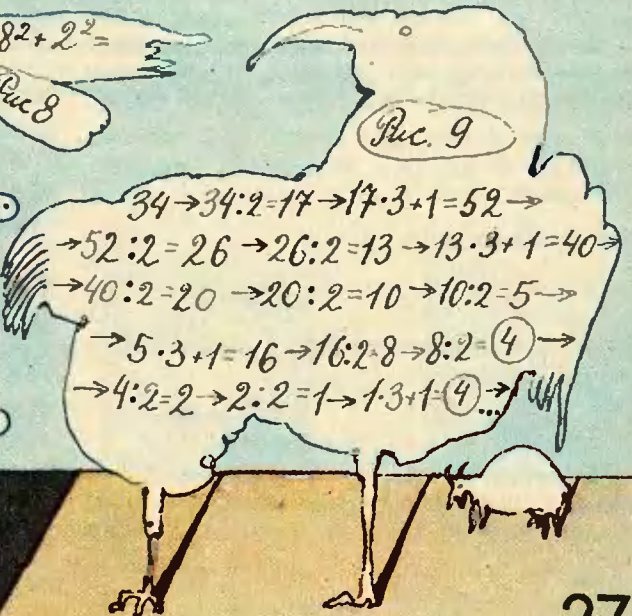 8²+2²=
Рис 8
Рис. 9
34→34:2=17→17·3+1=52→
→52:2=26→26:2=13→13·3+1=40→
→40:2=20→20:2=10→10:2=5→
→5·3+1=16→16:2=8→8:2=4→
→4:2=2→2:2=1→1·3+1=4→...
27